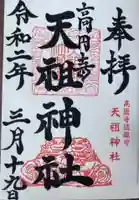 奉拝
高円寺
天祖神社
高円寺鎮座
天祖神社
令和二年
三月十九日